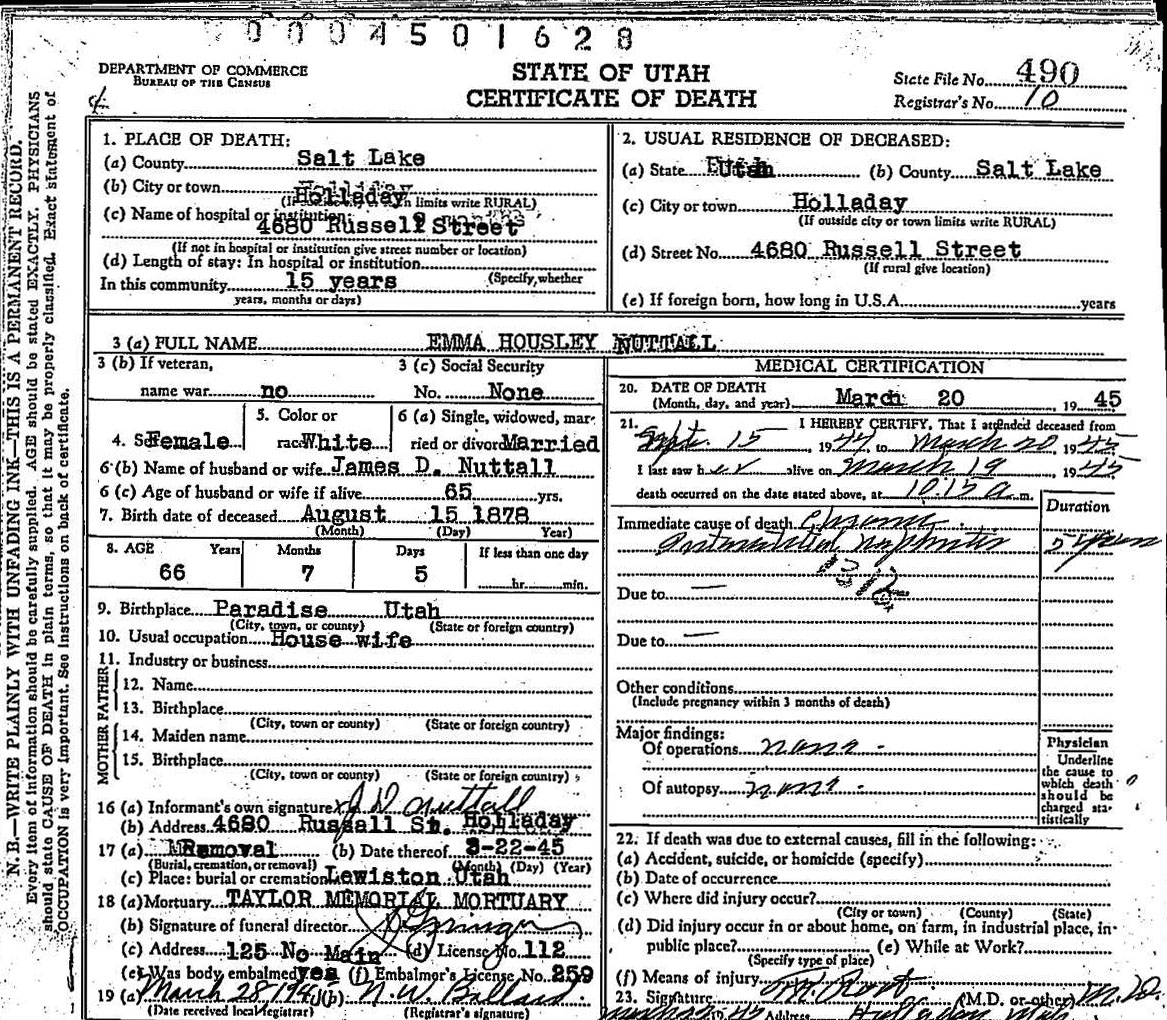 0004501628
DEPARTMENT OF COMMERCE
BUREAU OF THE CENSUS
STATE OF UTAH
CERTIFICATE OF DEATH
State File No. 490
Registrar's No. 10
N. B.—WRITE PLAINLY WITH UNFADING INK—THIS IS A PERMANENT RECORD.
Every item of information should be carefully supplied. AGE should be stated EXACTLY. PHYSICIANS
should state CAUSE OF DEATH in plain terms, so that it may be properly classified. Exact statement of
OCCUPATION is very important. See instructions on back of certificate.
1. PLACE OF DEATH:
(a) County Salt Lake
(b) City or town Holladay
(If outside city or town limits write RURAL)
(c) Name of hospital or institution:
4680 Russell Street
(If not in hospital or institution give street number or location)
(d) Length of stay: In hospital or institution
(Specify, whether
In this community 15 years
years, months or days)
2. USUAL RESIDENCE OF DECEASED:
(a) State Utah (b) County Salt Lake
(c) City or town Holladay
(If outside city or town limits write RURAL)
(d) Street No. 4680 Russell Street
(If rural give location)
(e) If foreign born, how long in U.S.A. years
3 (a) FULL NAME EMMA HOUSLEY NUTTALL
3 (b) If veteran,
name war no
3 (c) Social Security
No. None
4. Sex Female
5. Color or
race White
6 (a) Single, widowed, mar-
ried or divorced Married
6 (b) Name of husband or wife James D. Nuttall
6 (c) Age of husband or wife if alive 65 yrs.
7. Birth date of deceased August 15 1878
(Month) (Day) Year)
8. AGE Years Months Days If less than one day
66 7 5 hr. min.
9. Birthplace Paradise Utah
(City, town, or county) (State or foreign country)
10. Usual occupation House wife
11. Industry or business
FATHER
12. Name
13. Birthplace
(City, town or county) (State or foreign country)
MOTHER
14. Maiden name
15. Birthplace
(City, town or county) (State or foreign country)
16 (a) Informant's own signature J D Nuttall
(b) Address 4680 Russall St. Holladay
17 (a) Removal (b) Date thereof 3-22-45
(Burial, cremation, or removal) (Month) (Day) (Year)
(c) Place: burial or cremation Lewiston Utah
18 (a) Mortuary TAYLOR MEMORIAL MORTUARY
(b) Signature of funeral director
(c) Address 125 No Main (d) License No. 112
(e) Was body embalmed yes (f) Embalmor's License No. 259
19 (a) March 28 194 (b) N. W. Ballard
(Date received local registrar) (Registrar's signature)
MEDICAL CERTIFICATION
20. DATE OF DEATH
(Month, day, and year) March 20, 19 45
21. I HEREBY CERTIFY, That I attended deceased from
Sept. 15, 1944, to March 20, 1945
I last saw her alive on March 19, 1945
death occurred on the date stated above, at 1015 a m.
Duration
Immediate cause of death Chronic
Interstitial nephritis 5 years
131b
Due to —
Due to —
Other conditions
(Include pregnancy within 3 months of death)
Major findings:
Of operations none -
Of autopsy none -
Physician
Underline
the cause to
which death
should be
charged sta-
tistically
22. If death was due to external causes, fill in the following:
(a) Accident, suicide, or homicide (specify)
(b) Date of occurrence
(c) Where did injury occur?
(City or town) (County) (State)
(d) Did injury occur in or about home, on farm, in industrial place, in-
public place? (e) While at Work?
(Specify type of place)
(f) Means of injury
23. Signature (M.D. or other) M.D.
Address Holladay